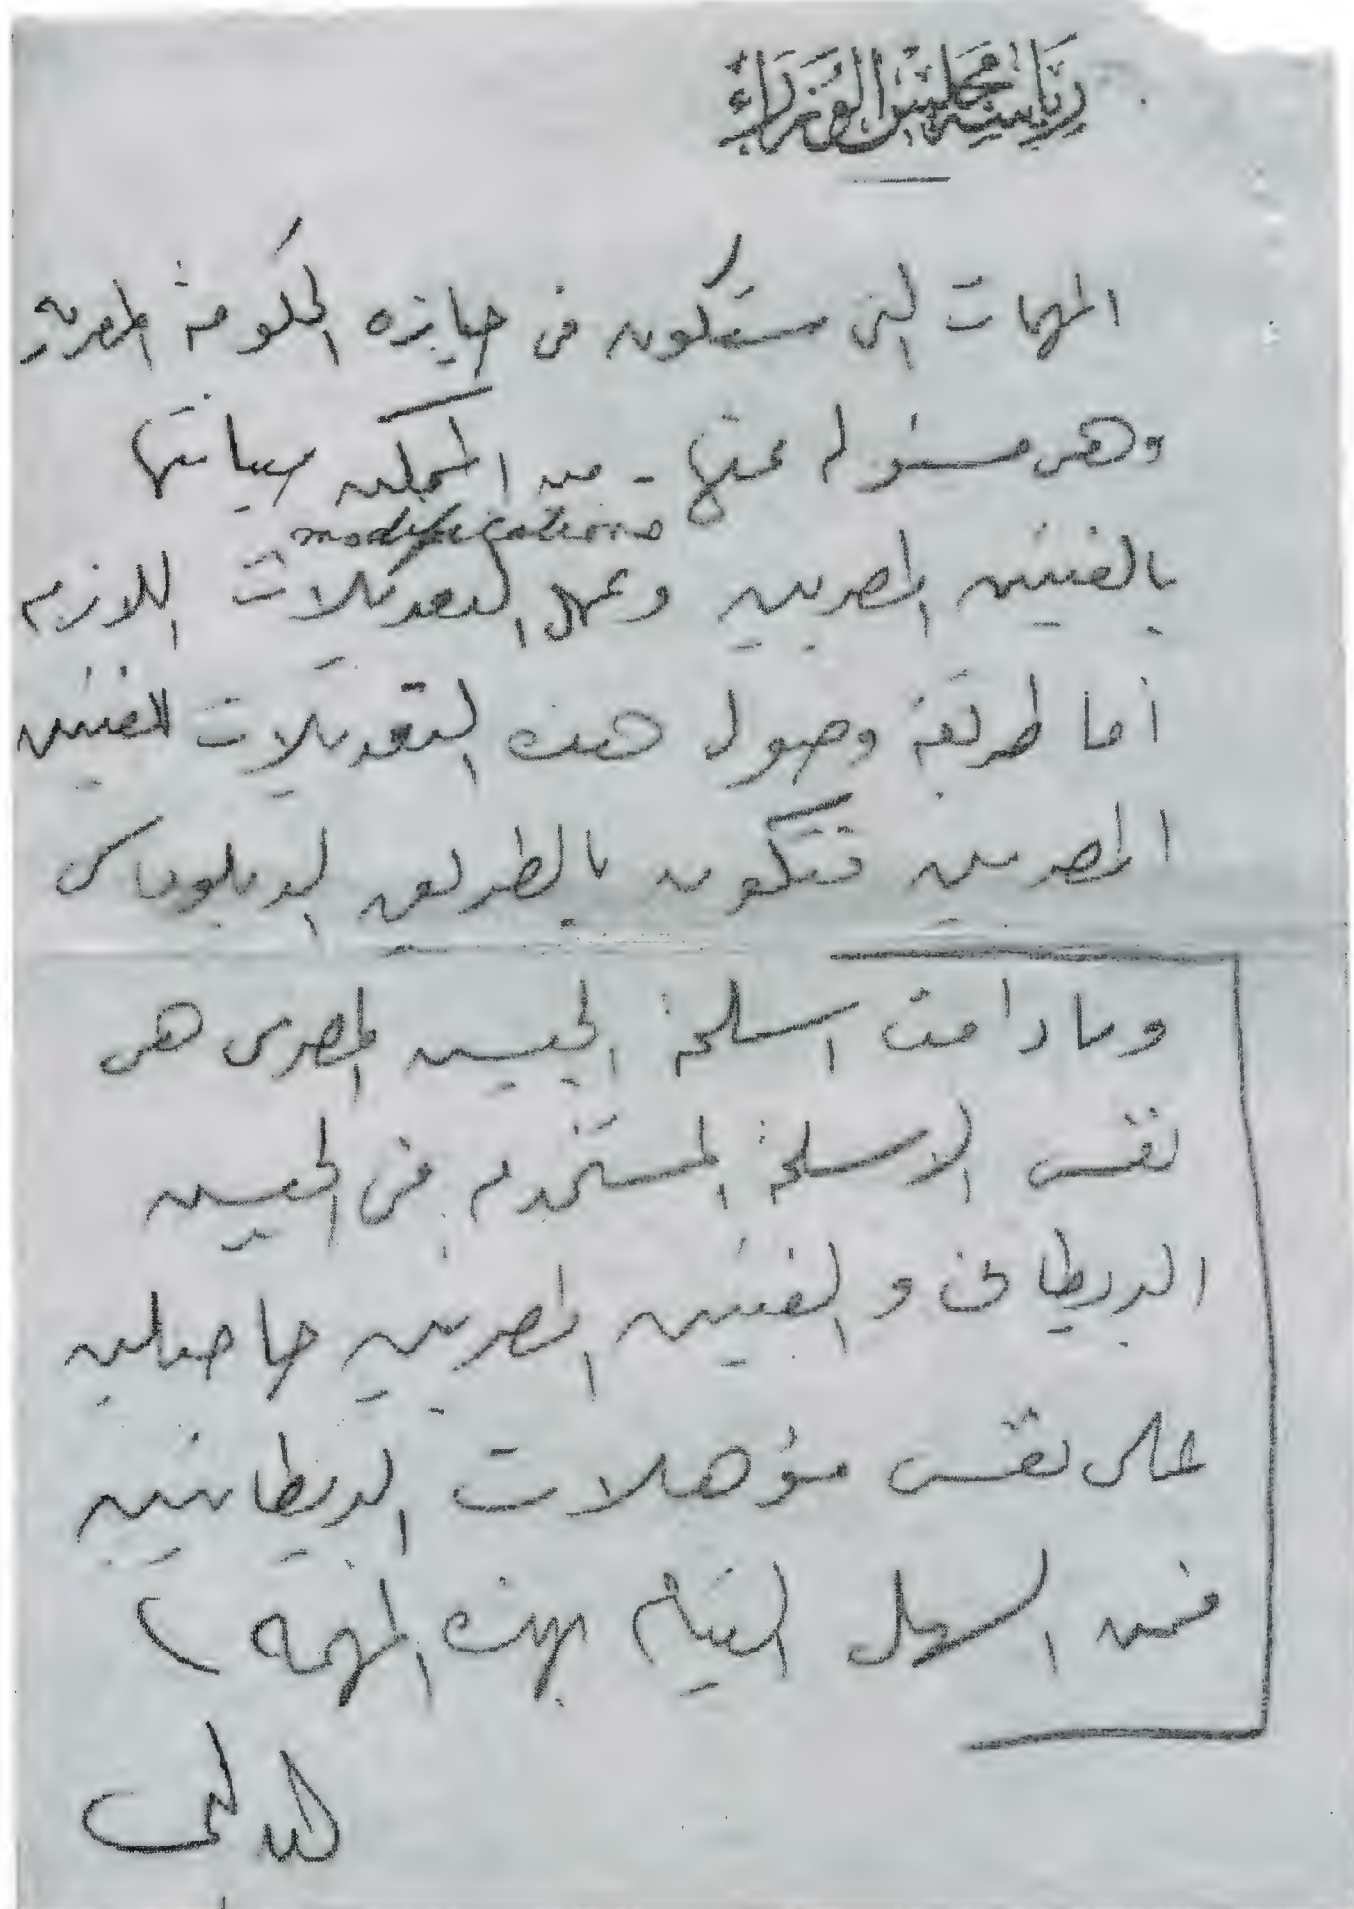 رياسة مجلس الوزراء
المهمات التى ستكون فى حيازه الحكومة المصريه
وهى مسئوله عنها - من الممكن صيانتها
modifications
بالفنيين المصريين وعمل التعديلات اللازمه
أما طريقة وصول هذه التعديلات للفنيين
المصريين فتكون بالطريق الدبلوماسى
وما دامت اسلحة الجيش المصرى هى
نفس الاسلحة المستخدمه فى الجيش
البريطانى والفنيين المصريين حاصلين
على نفس مؤهلات البريطانيين
فمن السهل القيام بهذه المهمه)